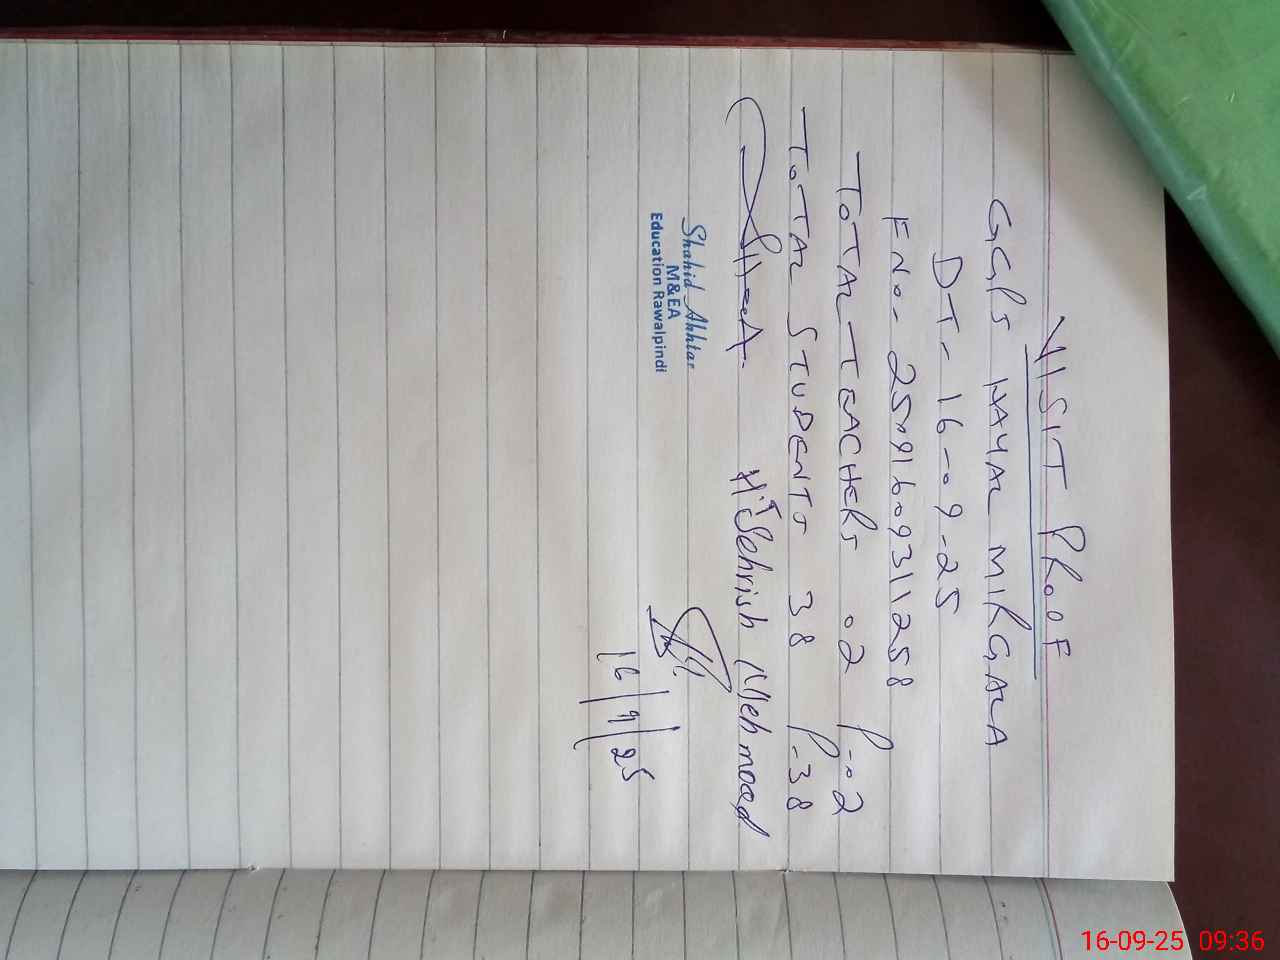 VISIT PROOF
GGPS NAYAL MIRGALA
DT- 16-09-25
FNo- 25091609311258
TOTAL TEACHERS 02 P-02
TOTAL STUDENTS 38 P-38
H.T Sehrish Mehmood
Shahid Akhtar
M&EA
Education Rawalpindi
16/9/25
16-09-25 09:36